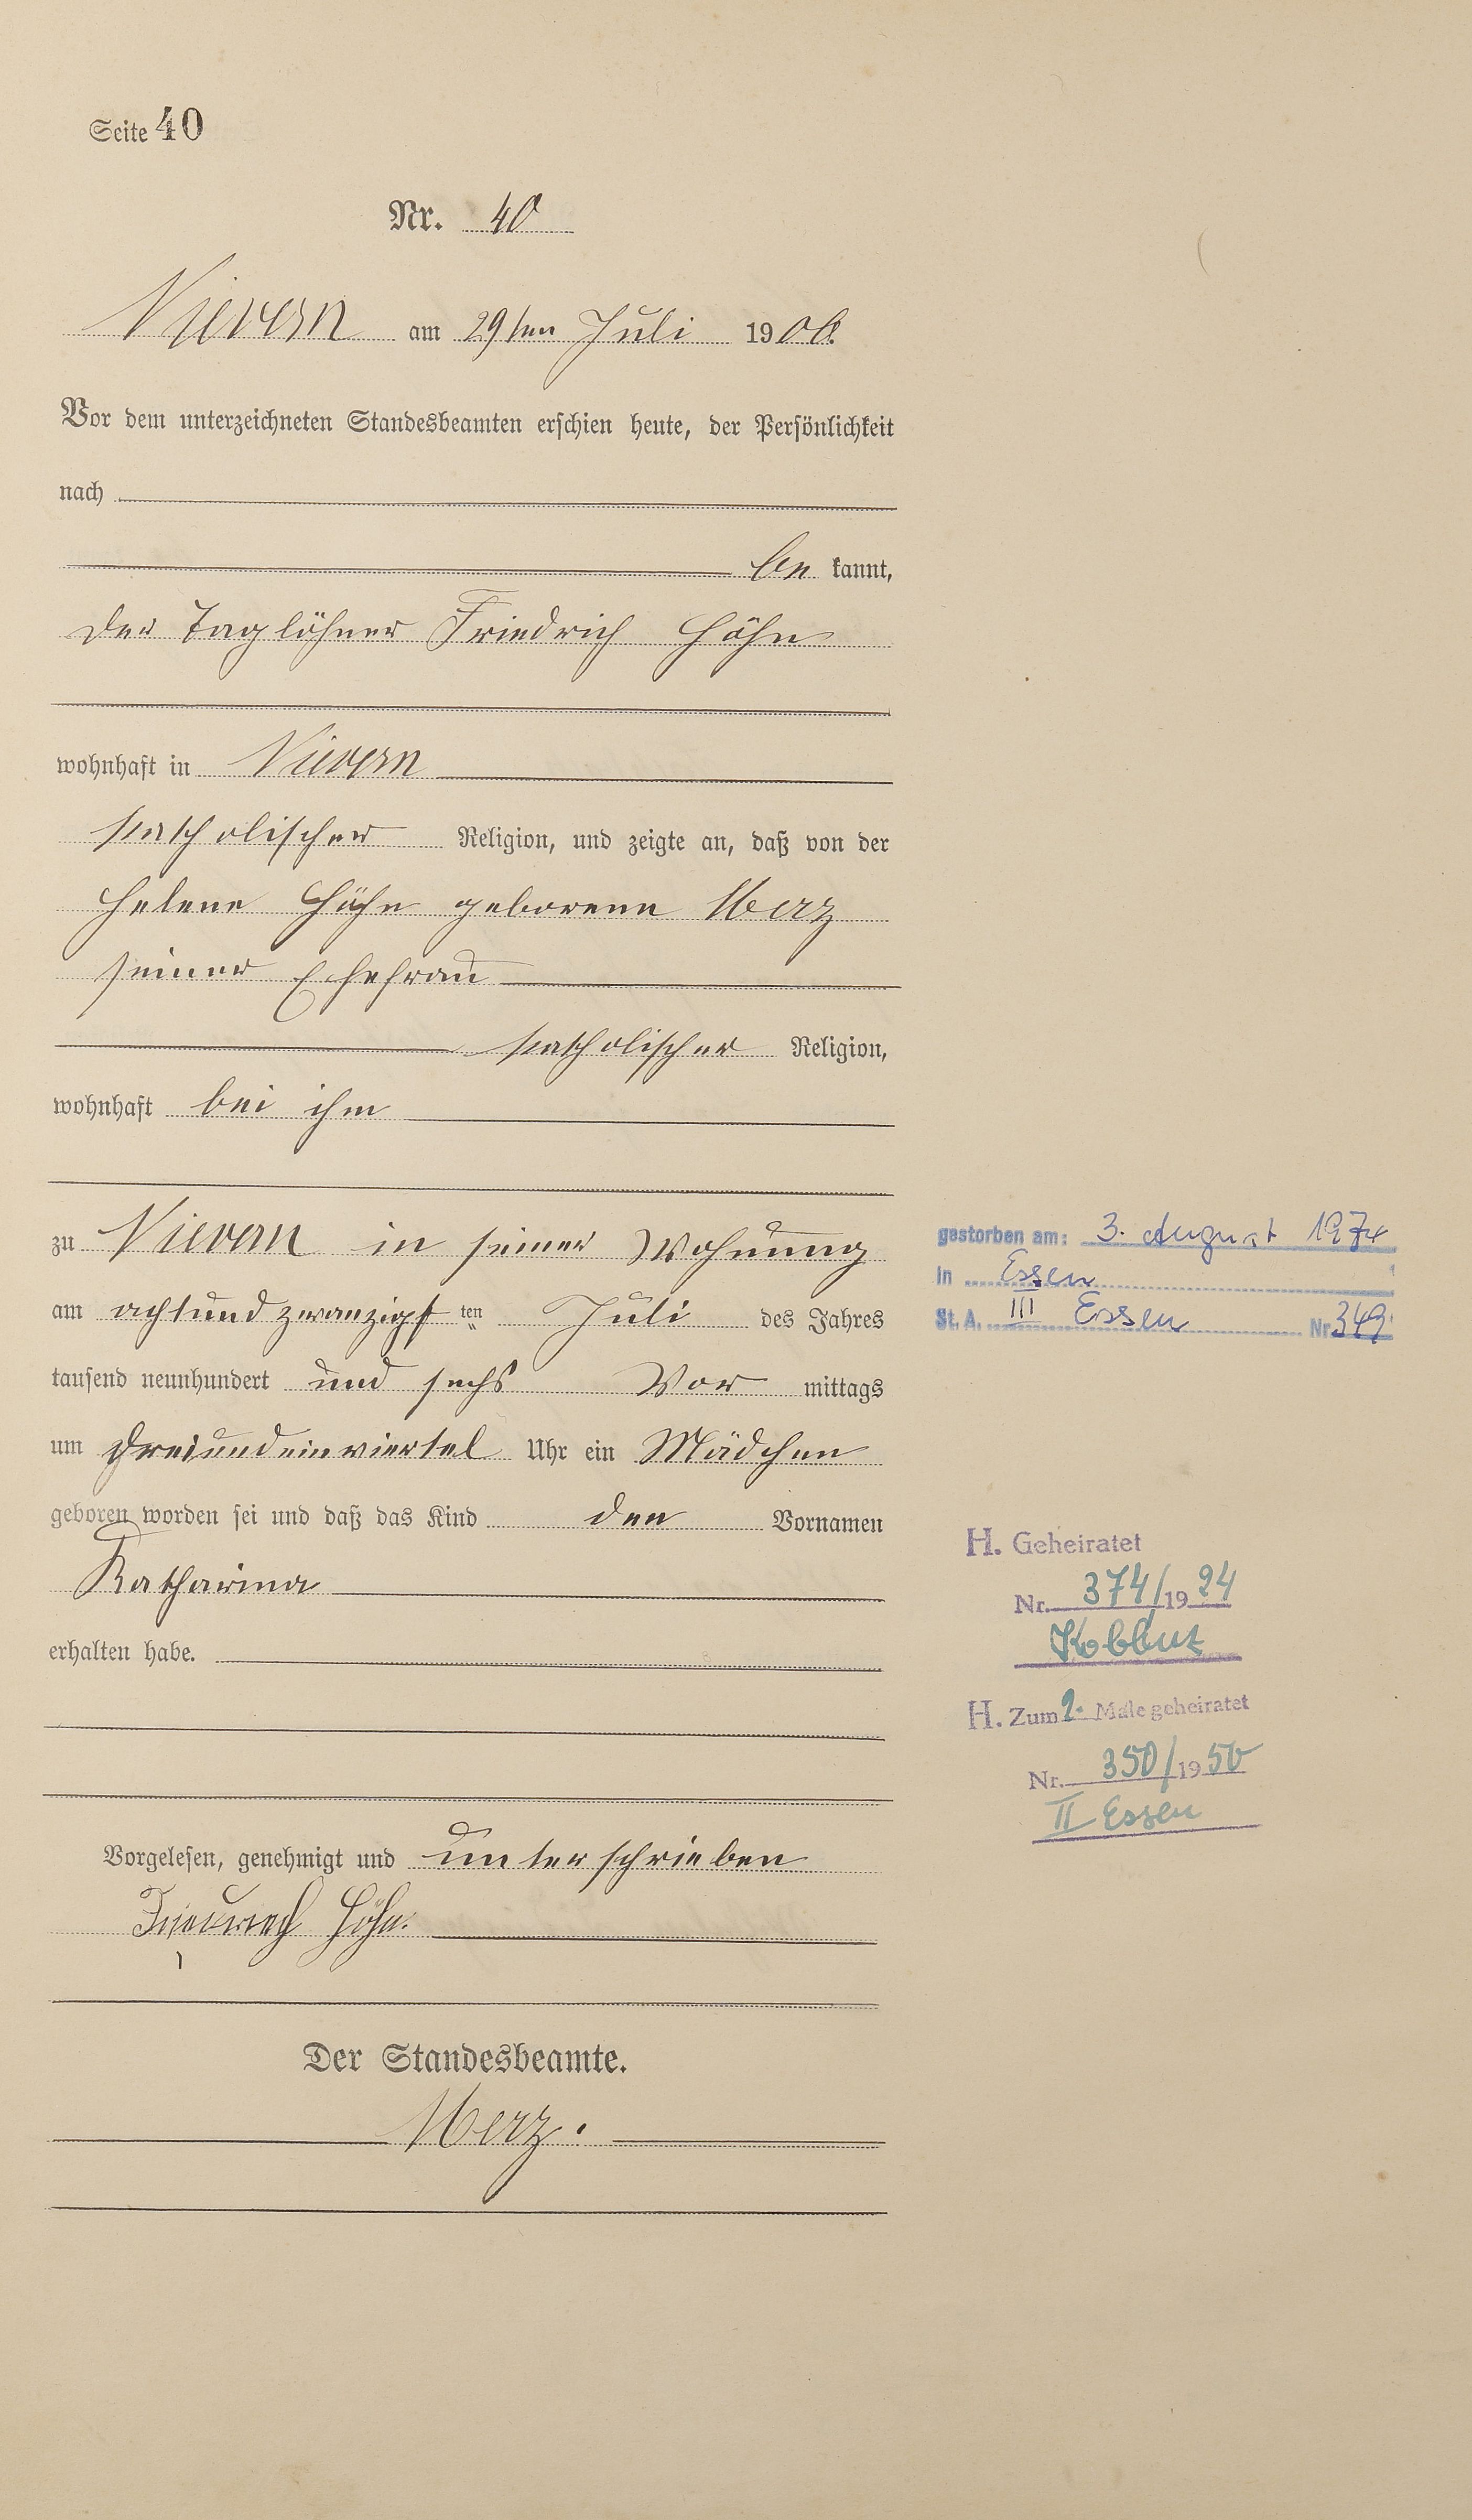 Seite 40
Nr. 40
Nievern am 29ten Juli 1906.
Vor dem unterzeichneten Standesbeamten erschien heute, der Persönlichkeit
nach
be kannt,
der Taglöhner Friedrich Höhn
wohnhaft in Nievern
katholischer Religion, und zeigte an, daß von der
Helene Höhn geborene Merz
seiner Ehefrau
katholischer Religion,
wohnhaft bei ihm
zu Nievern in seiner Wohnung
am achtundzwanzigsten Juli des Jahres
tausend neunhundert und sechs Vor mittags
um dreiundeinviertel Uhr ein Mädchen
geboren worden sei und daß das Kind den Vornamen
Katharina
erhalten habe.
Vorgelesen, genehmigt und unterschrieben
Friedrich Höhn.
Der Standesbeamte.
Merz.
gestorben am: 3. August 1974
in Essen
St. A. III Essen Nr 349
H. Geheiratet
Nr. 374/1924
Koblenz
H. Zum 2. Male geheiratet
Nr. 350/1950
II Essen